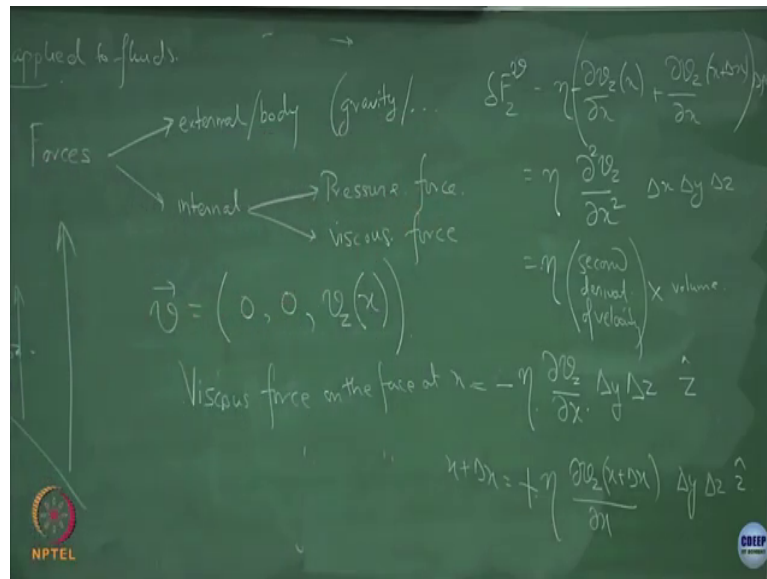 applied to fluids.
Forces
external/body (gravity/...
internal
Pressure force.
viscous force
v⃗ = (0, 0, v_z(x))
Viscous force on the face at x = -η ∂v_z/∂x Δy Δz ẑ
x+Δx = +η ∂v_z(x+Δx)/∂x Δy Δz ẑ
δF_z^v = η(-∂v_z(x)/∂x + ∂v_z(x+Δx)/∂x)
= η ∂²v_z/∂x² Δx Δy Δz
= η (second derivat. of velocity) × volume.
NPTEL
CDEEP